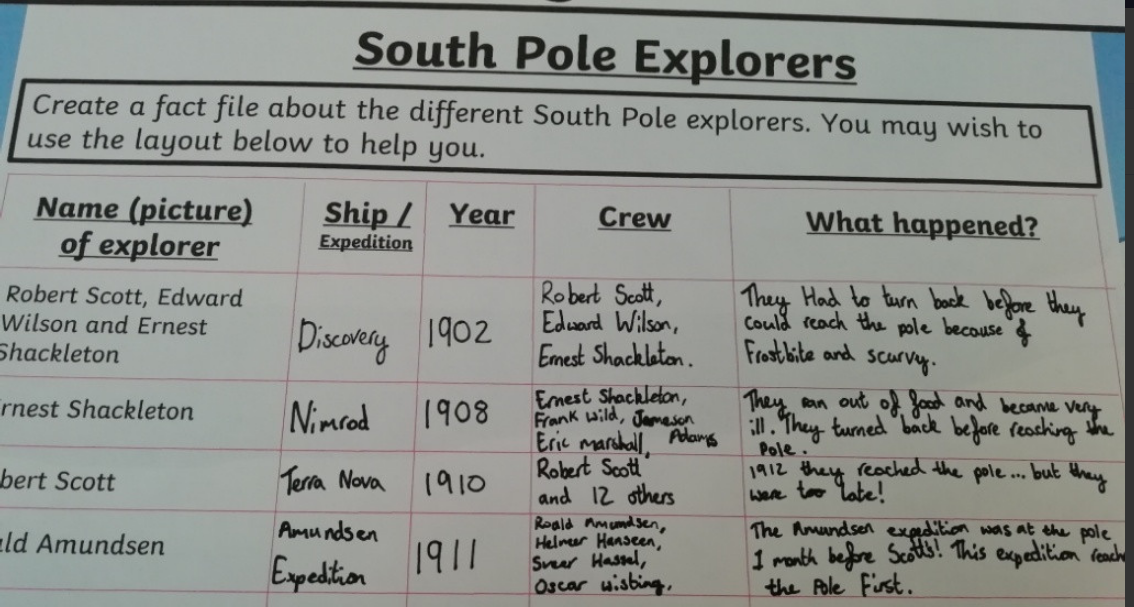 South Pole Explorers
Create a fact file about the different South Pole explorers. You may wish to
use the layout below to help you.
Name (picture)
of explorer
Ship /
Expedition
Year
Crew
What happened?
Robert Scott, Edward
Wilson and Ernest
Shackleton
Discovery
1902
Robert Scott,
Edward Wilson,
Ernest Shackleton.
They Had to turn back before they
could reach the pole because of
Frostbite and scurvy.
rnest Shackleton
Nimrod
1908
Ernest Shackleton,
Frank Wild, Jameson
Eric marshall, Adams
They ran out of food and became very
ill. They turned back before reaching the
Pole.
bert Scott
Terra Nova
1910
Robert Scott
and 12 others
1912 they reached the pole... but they
were too late!
ld Amundsen
Amundsen
Expedition
1911
Roald Amundsen,
Helmer Hanseen,
Svear Hassel,
Oscar wisting,
The Amundsen expedition was at the pole
1 month before Scotts! This expedition reach
the Pole First.